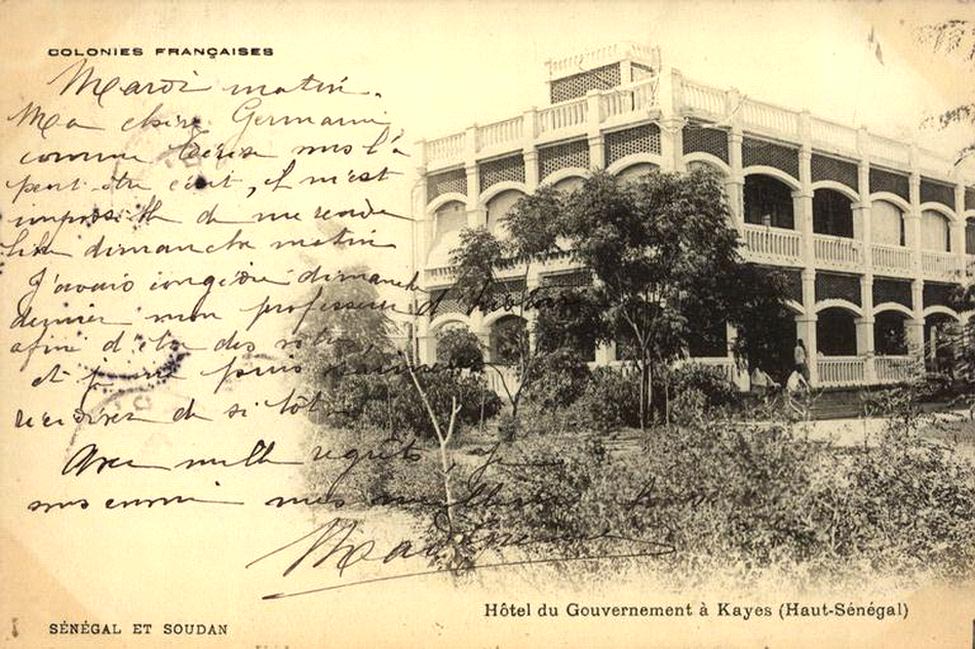 COLONIES FRANÇAISES
Mardi matin.
Ma chère Germaine
comme vous l'a
peut être écrit, il m'est
impossible de me rendre
dimanche matin
J'avais congédié dimanche
dernier mon professeur d'
afin d'être des
et je ne puis
de si tôt
Avec mille regrets, je
vous envoie mes
Madeleine
Hôtel du Gouvernement à Kayes (Haut-Sénégal)
SÉNÉGAL ET SOUDAN